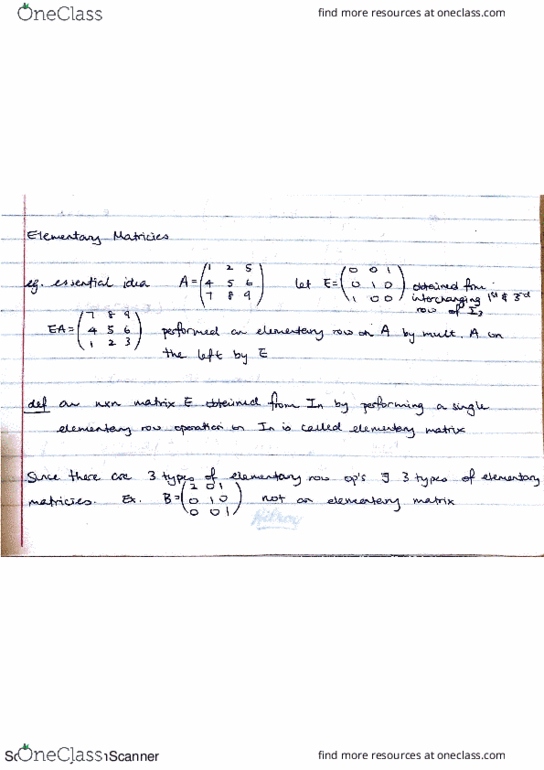 OneClass find more resources at oneclass.com
Elementary Matricies
eg. essential idea A = (1 2 5 Let E = (0 0 1 obtained from
4 5 6 0 1 0 interchanging 1st & 3rd
7 8 9) 1 0 0) row of I3
EA = (7 8 9
4 5 6 performed an elementary row on A by mult. A on
1 2 3) the left by E
def an nxn matrix E obtained from In by performing a single
elementary row operation on In is called elementary matrix
Since there are 3 types of elementary row op's ∃ 3 types of elementary
matricies. Ex. B = (2 0 1
0 1 0 not an elementary matrix
0 0 1)
OneClass Scanner find more resources at oneclass.com